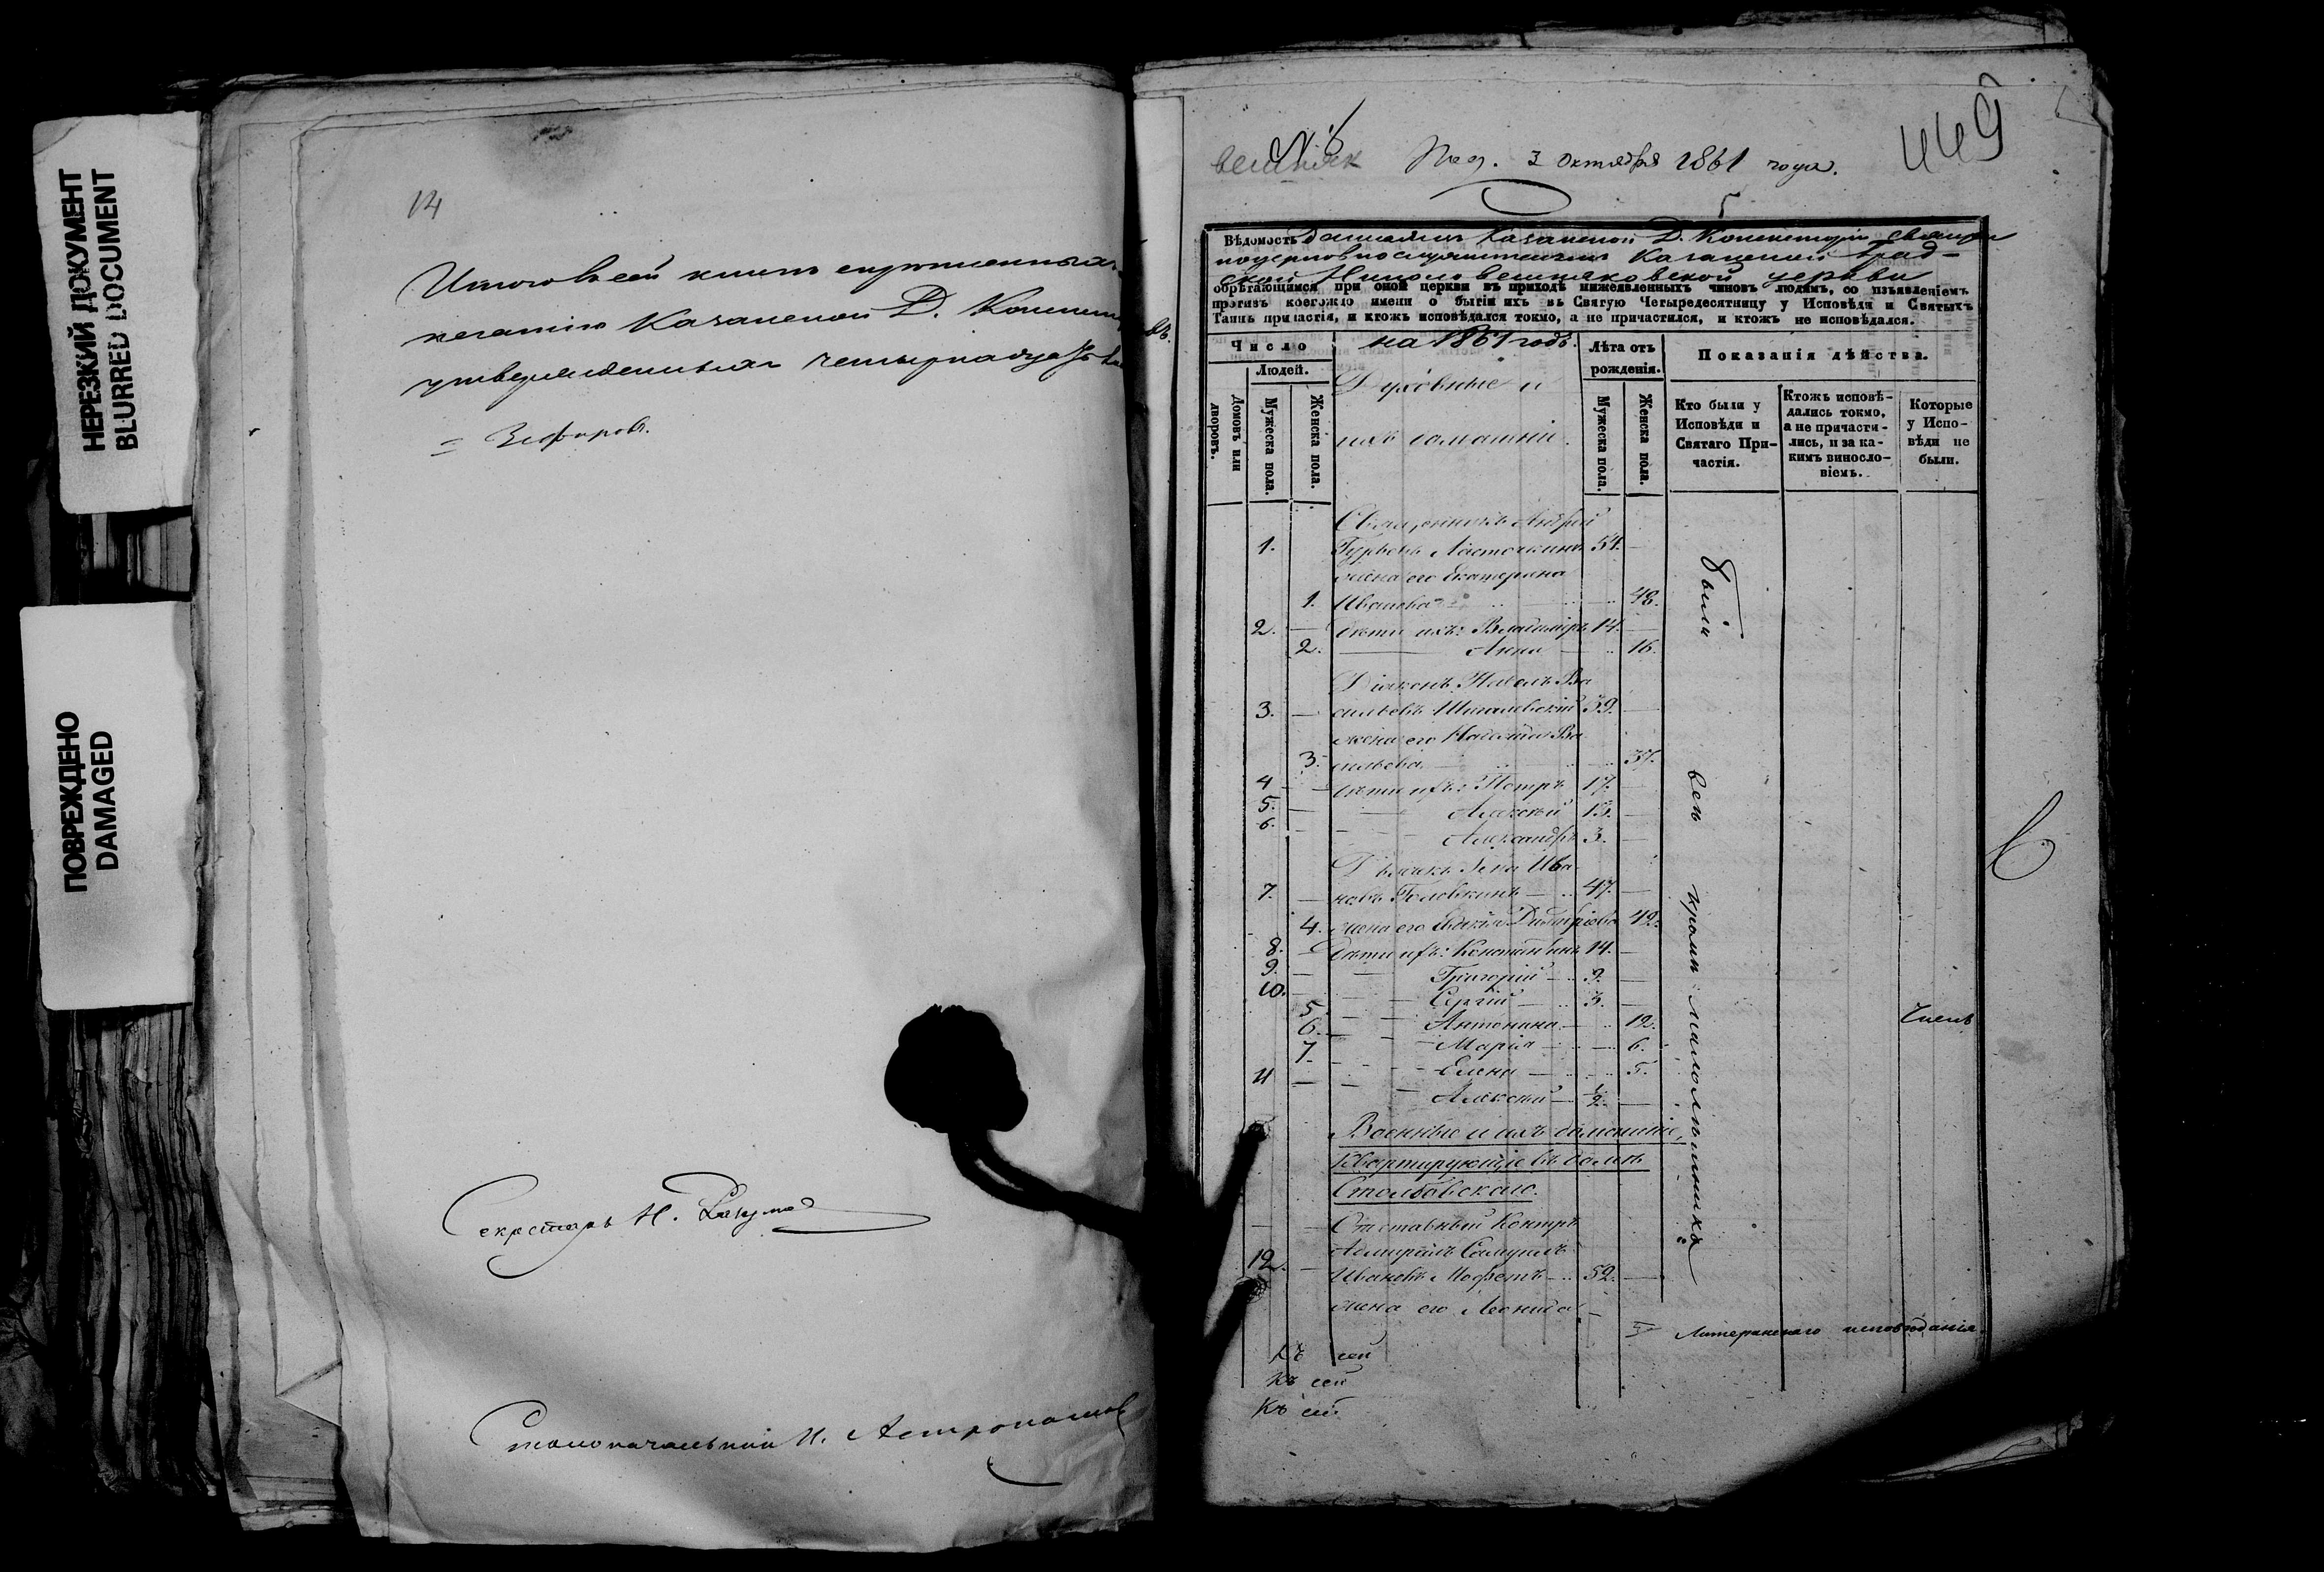 НЕРЕЗКИЙ ДОКУМЕНТ
BLURRED DOCUMENT
ПОВРЕЖДЕНО
DAMAGED
14
Итого в сей книге скрепленныхъ
печатію Казанской Д. Консист
утвержденныхъ четырнадцать
= Зефировъ.
Секретарь Н.
Столоначальникъ И.
449
вешняк
Пол. 3 Октября 1861 года.
5
Вѣдомость Казанской Д. Консисторіи
Казанской Град-
ской Николо Вешняковской церкви
обрѣтающимся при оной церкви въ приходѣ нижеявленныхъ чиновъ людямъ, со изъявленіемъ
противъ коегождо имени о бытіи ихъ въ Святую Четыредесятницу у Исповѣди и Святыхъ
Таинъ причастія, и ктожъ исповѣдался токмо, а не причастился, и ктожъ не исповѣдался.
на 1861 годъ.
Число
Людей.
Домовъ или дворовъ.
Мужеска пола.
Женска пола.
Духовные и
ихъ домашніе.
Лѣта отъ рожденія.
Мужеска пола.
Женска пола.
Показанія дѣйства.
Кто были у Исповѣди и Святаго При-частія.
Ктожъ исповѣ-дались токмо, а не причасти-лись, и за ка-кимъ винословіемъ.
Которые у Испо-вѣди не были.
Священникъ Андрей
1. Гурьевъ Ласточкинъ 54. —
жена его Екатерина
1. Иванова 48.
2. — дѣти ихъ: Владиміръ 14. —
2. Анна 16.
Діаконъ Павелъ Ва
3. — сильевъ 39. —
жена его Ва
3. сильева 37.
4 — дѣти ихъ: Петръ 17. —
5. — Алексѣй 13. —
6. — Александръ 3. —
Дьячекъ Ива
7. — новъ Головкинъ — 47. —
4. жена его Димитріева 42.
8. — дѣти ихъ: Константинъ 14. —
9. — Григорій — 9. —
10. — Сергій — 3. —
5. Антонина — 12.
6. Марія — 6.
7. Елена — 5.
11 — Алексѣй — 1/2. —
были
всѣ
кромѣ
малолѣтнихъ
Военные и ихъ домашніе,
Квартирующіе въ домѣ
Столбовскаго.
Отставный Контръ
Адмиралъ Самуилъ
12. — Ивановъ Мофетъ — 52. —
жена его Леонида —
Лютеранскаго исповѣданія.
Къ сей
Къ сей
Къ сей